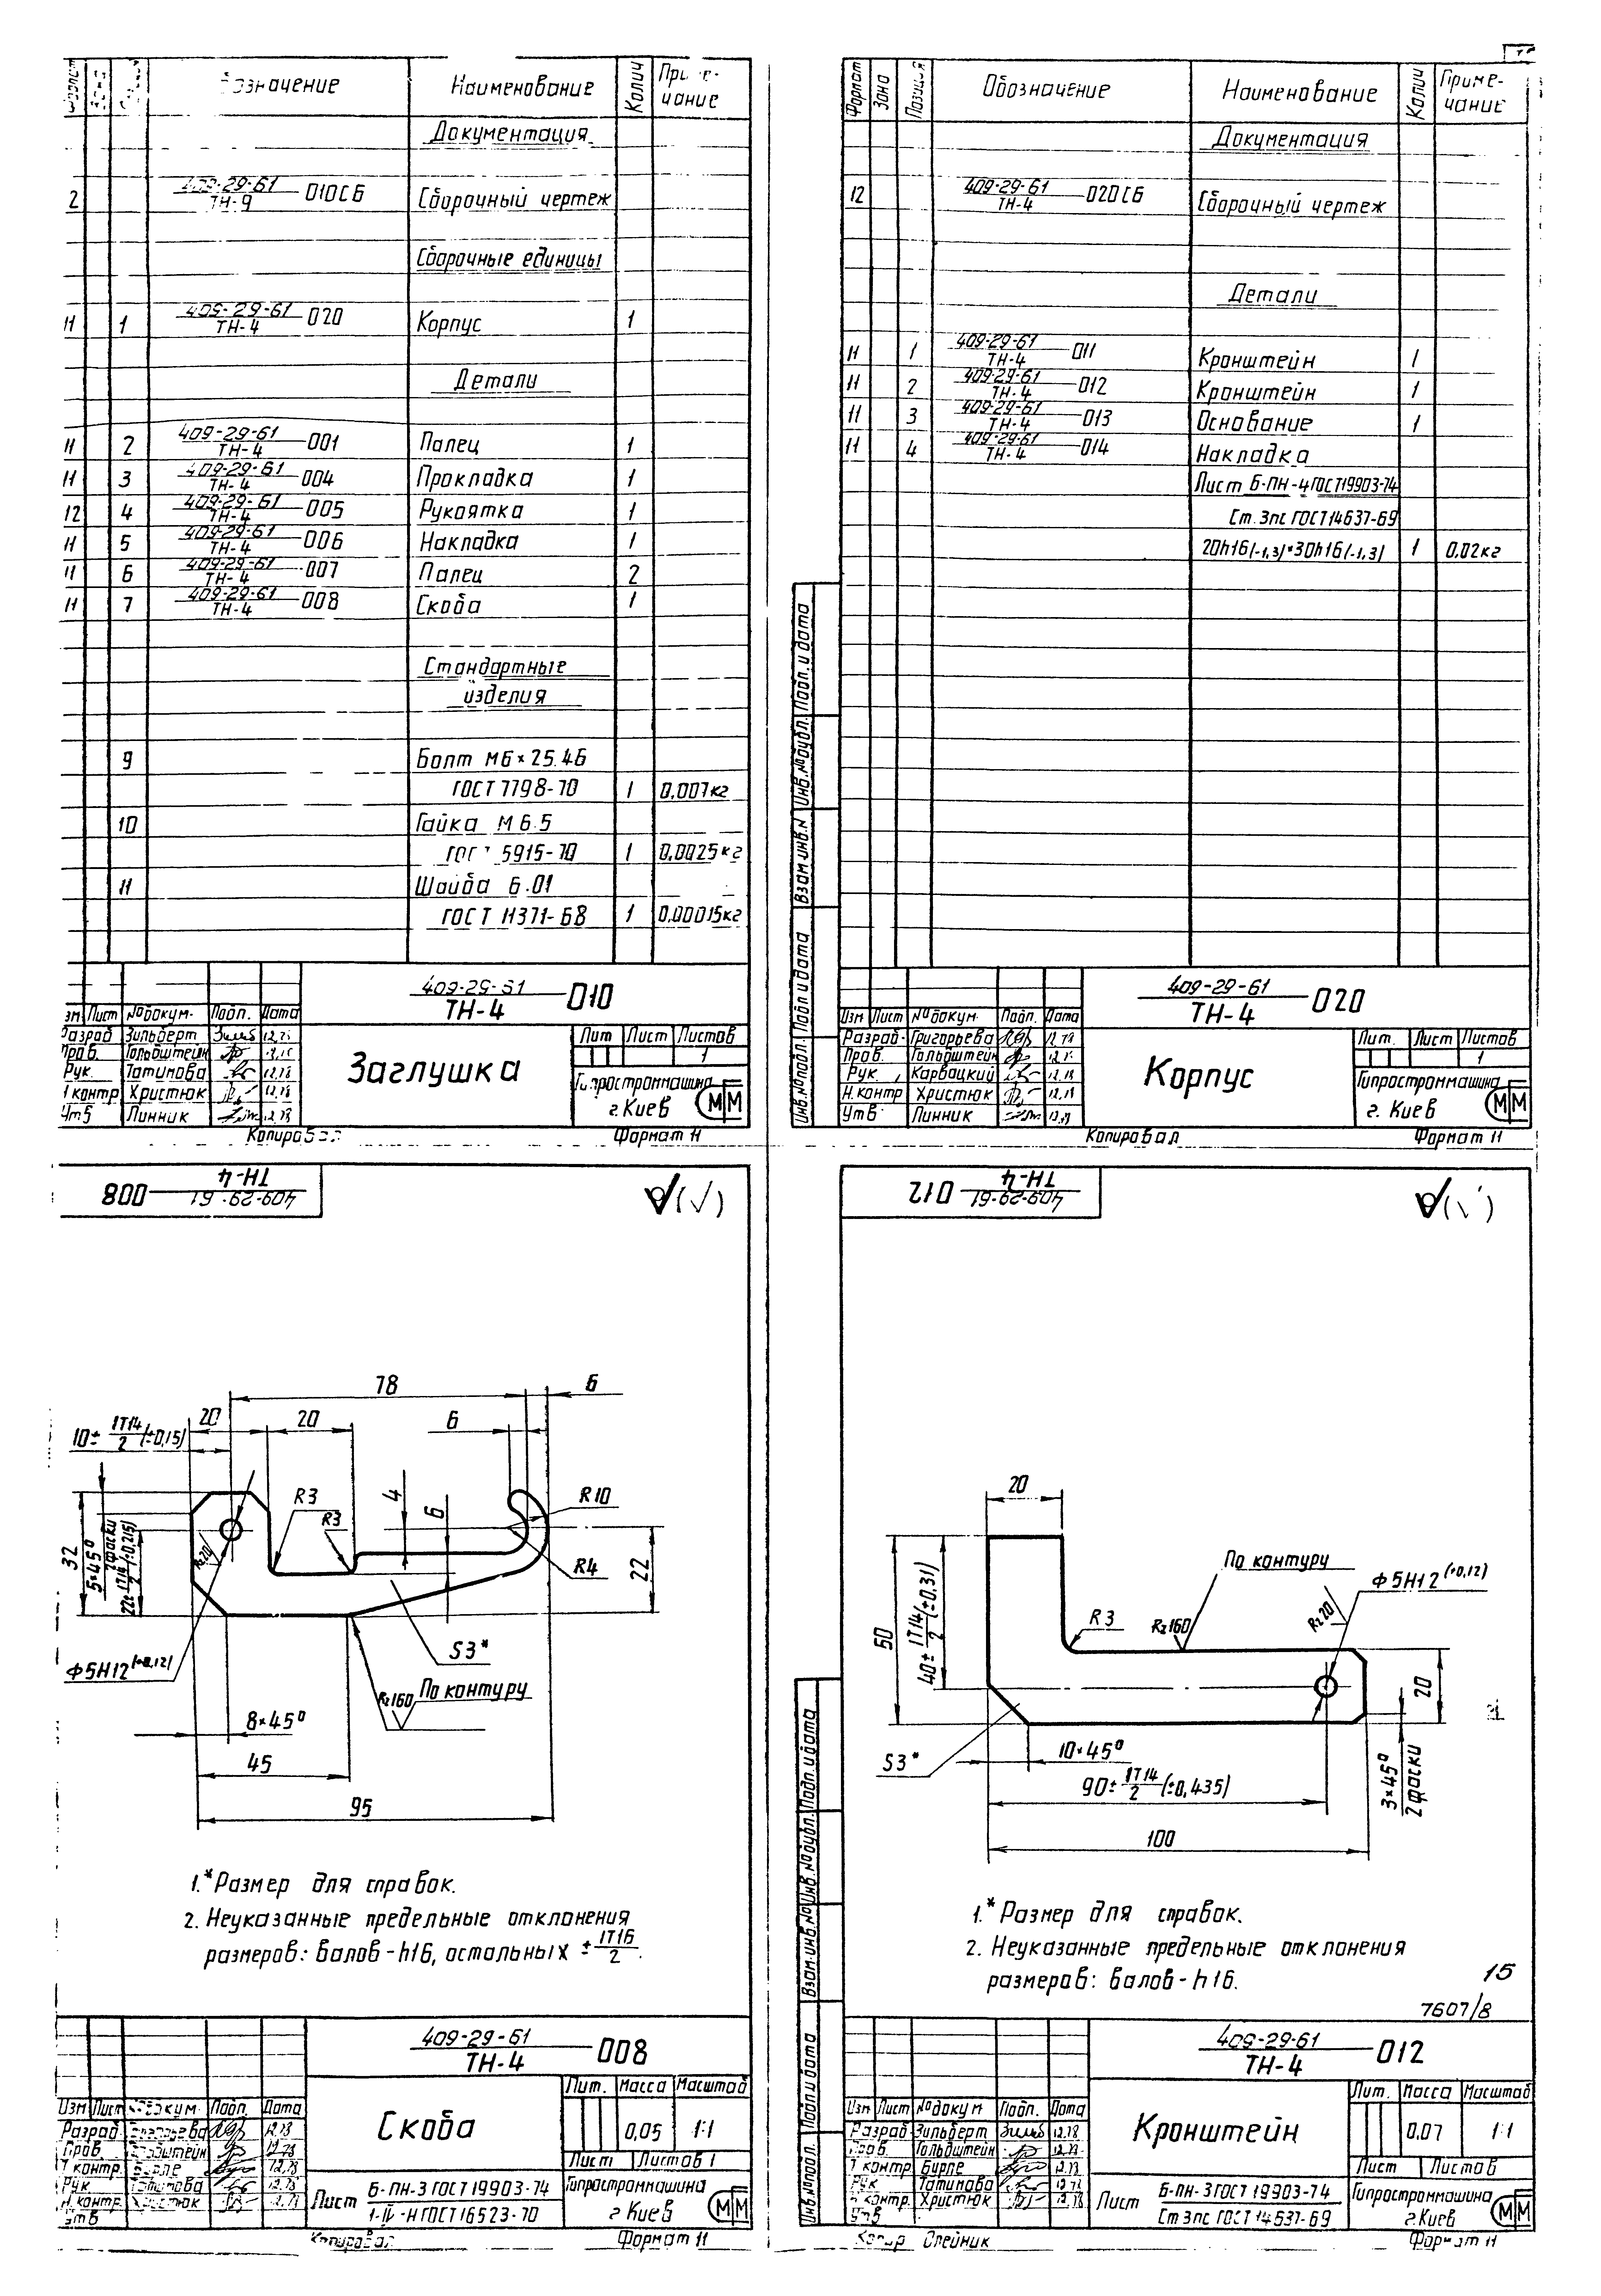 Обозначение Наименование Колич Приме-
чание
Документация
2 409-29-61 010СБ Сборочный чертеж
ТН-4
Сборочные единицы
11 1 409-29-61 020 Корпус 1
ТН-4
Детали
11 2 409-29-61 001 Палец 1
ТН-4
11 3 409-29-61 004 Прокладка 1
ТН-4
12 4 409-29-61 005 Рукоятка 1
ТН-4
11 5 409-29-61 006 Накладка 1
ТН-4
11 6 409-29-61 007 Палец 2
ТН-4
11 7 409-29-61 008 Скоба 1
ТН-4
Стандартные
изделия
9 Болт М6×25.46
ГОСТ 7798-70 1 0,007кг
10 Гайка М6.5
ГОСТ 5915-70 1 0,0025кг
11 Шайба 6.01
ГОСТ 11371-68 1 0,00015кг
409-29-61 010
ТН-4
Изм Лист № докум. Подп. Дата
Разраб Зильберт 12.78
Пров. Гольдштейн 12.78
Рук. Татинова 12.78
Н контр Христюк 12.78
Утв Линник 12.78
Заглушка
Лит Лист Листов
1
Гипростроммашина
г. Киев
ММ
Копировал Формат 11
Формат Зона Позиция Обозначение Наименование Колич Приме-
чание
Документация
12 409-29-61 020СБ Сборочный чертеж
ТН-4
Детали
11 1 409-29-61 011 Кронштейн 1
ТН-4
11 2 409-29-61 012 Кронштейн 1
ТН-4
11 3 409-29-61 013 Основание 1
ТН-4
11 4 409-29-61 014 Накладка
ТН-4
Лист Б-ПН-4 ГОСТ19903-74
Ст.3пс ГОСТ14637-69
20h16(-1,3)*30h16(-1,3) 1 0,02кг
Инв.№подл. Подп и дата Взам инв.№ Инв.№дубл. Подп. и дата
409-29-61 020
ТН-4
Изм Лист № докум. Подп. Дата
Разраб. Григорьева 12.78
Пров. Гольдштейн 12.78
Рук. Карвацкий 12.78
Н.контр Христюк 12.78
Утв. Линник 12.78
Корпус
Лит. Лист Листов
1
Гипростроммашина
г. Киев
ММ
Копировал Формат 11
409-29-61 008
ТН-4
√(√)
78 6
20 20 6
10± IT14/2 (±0,15)
R3 R3 4 6 R10
32
5×45°
2 фаски
22± IT14/2 (±0,215)
Rz20
R4 22
Ф5Н12(+0,12)
S3*
Rz160 По контуру
8×45°
45
95
1.* Размер для справок.
2. Неуказанные предельные отклонения
размеров: валов-h16, остальных ± IT16/2.
409-29-61 008
ТН-4
Изм Лист № докум. Подп. Дата
Разраб Григорьева 12.78
Пров Гольдштейн 12.78
Т контр. Бирле 12.78
Рук Татинова 12.78
Н. контр. Христюк 12.78
Утв
Скоба
Лит. Масса Масштаб
0,05 1:1
Лист Листов 1
Лист Б-ПН-3 ГОСТ 19903-74
1-IV-Н ГОСТ 16523-70
Гипростроммашина
г Киев
ММ
Копировал Формат 11
409-29-61 012
ТН-4
√(√)
20
50
40± IT14/2 (±0.31)
R3 Rz160 По контуру
Ф5Н12(+0,12)
Rz20
20
S3*
10×45°
90± IT14/2 (±0,435)
3×45°
2 фаски
100
1.* Размер для справок.
2. Неуказанные предельные отклонения
размеров: валов-h16.
15
7607/8
Инв.№подл. Подп и дата Взам.инв.№ Инв.№дубл. Подп. и дата
409-29-61 012
ТН-4
Изм Лист № докум Подп. Дата
Разраб Зильберт 12.78
Пров. Гольдштейн 12.78
Т контр Бирле 12.78
Рук Татинова 12.78
Н контр. Христюк 12.78
Утв
Кронштейн
Лит. Масса Масштаб
0,07 1:1
Лист Листов
Лист Б-ПН-3 ГОСТ 19903-74
Ст 3пс ГОСТ 14637-69
Гипростроммашина
г.Киев
ММ
Копир Олейник Формат 11